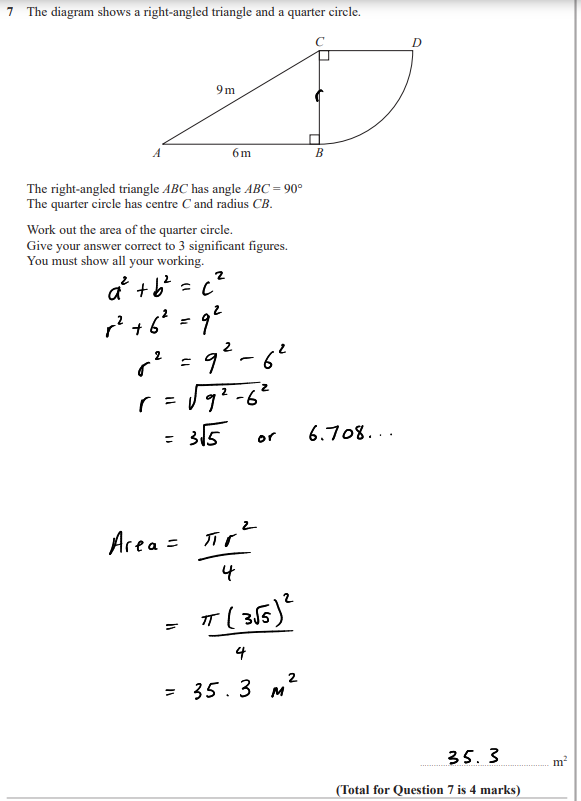 7 The diagram shows a right-angled triangle and a quarter circle.
C D
9 m
r
A 6 m B
The right-angled triangle ABC has angle ABC = 90°
The quarter circle has centre C and radius CB.
Work out the area of the quarter circle.
Give your answer correct to 3 significant figures.
You must show all your working.
a² + b² = c²
r² + 6² = 9²
r² = 9² - 6²
r = √9² - 6²
= 3√5 or 6.708...
Area = πr²
4
= π(3√5)²
4
= 35.3 m²
35.3 m²
(Total for Question 7 is 4 marks)